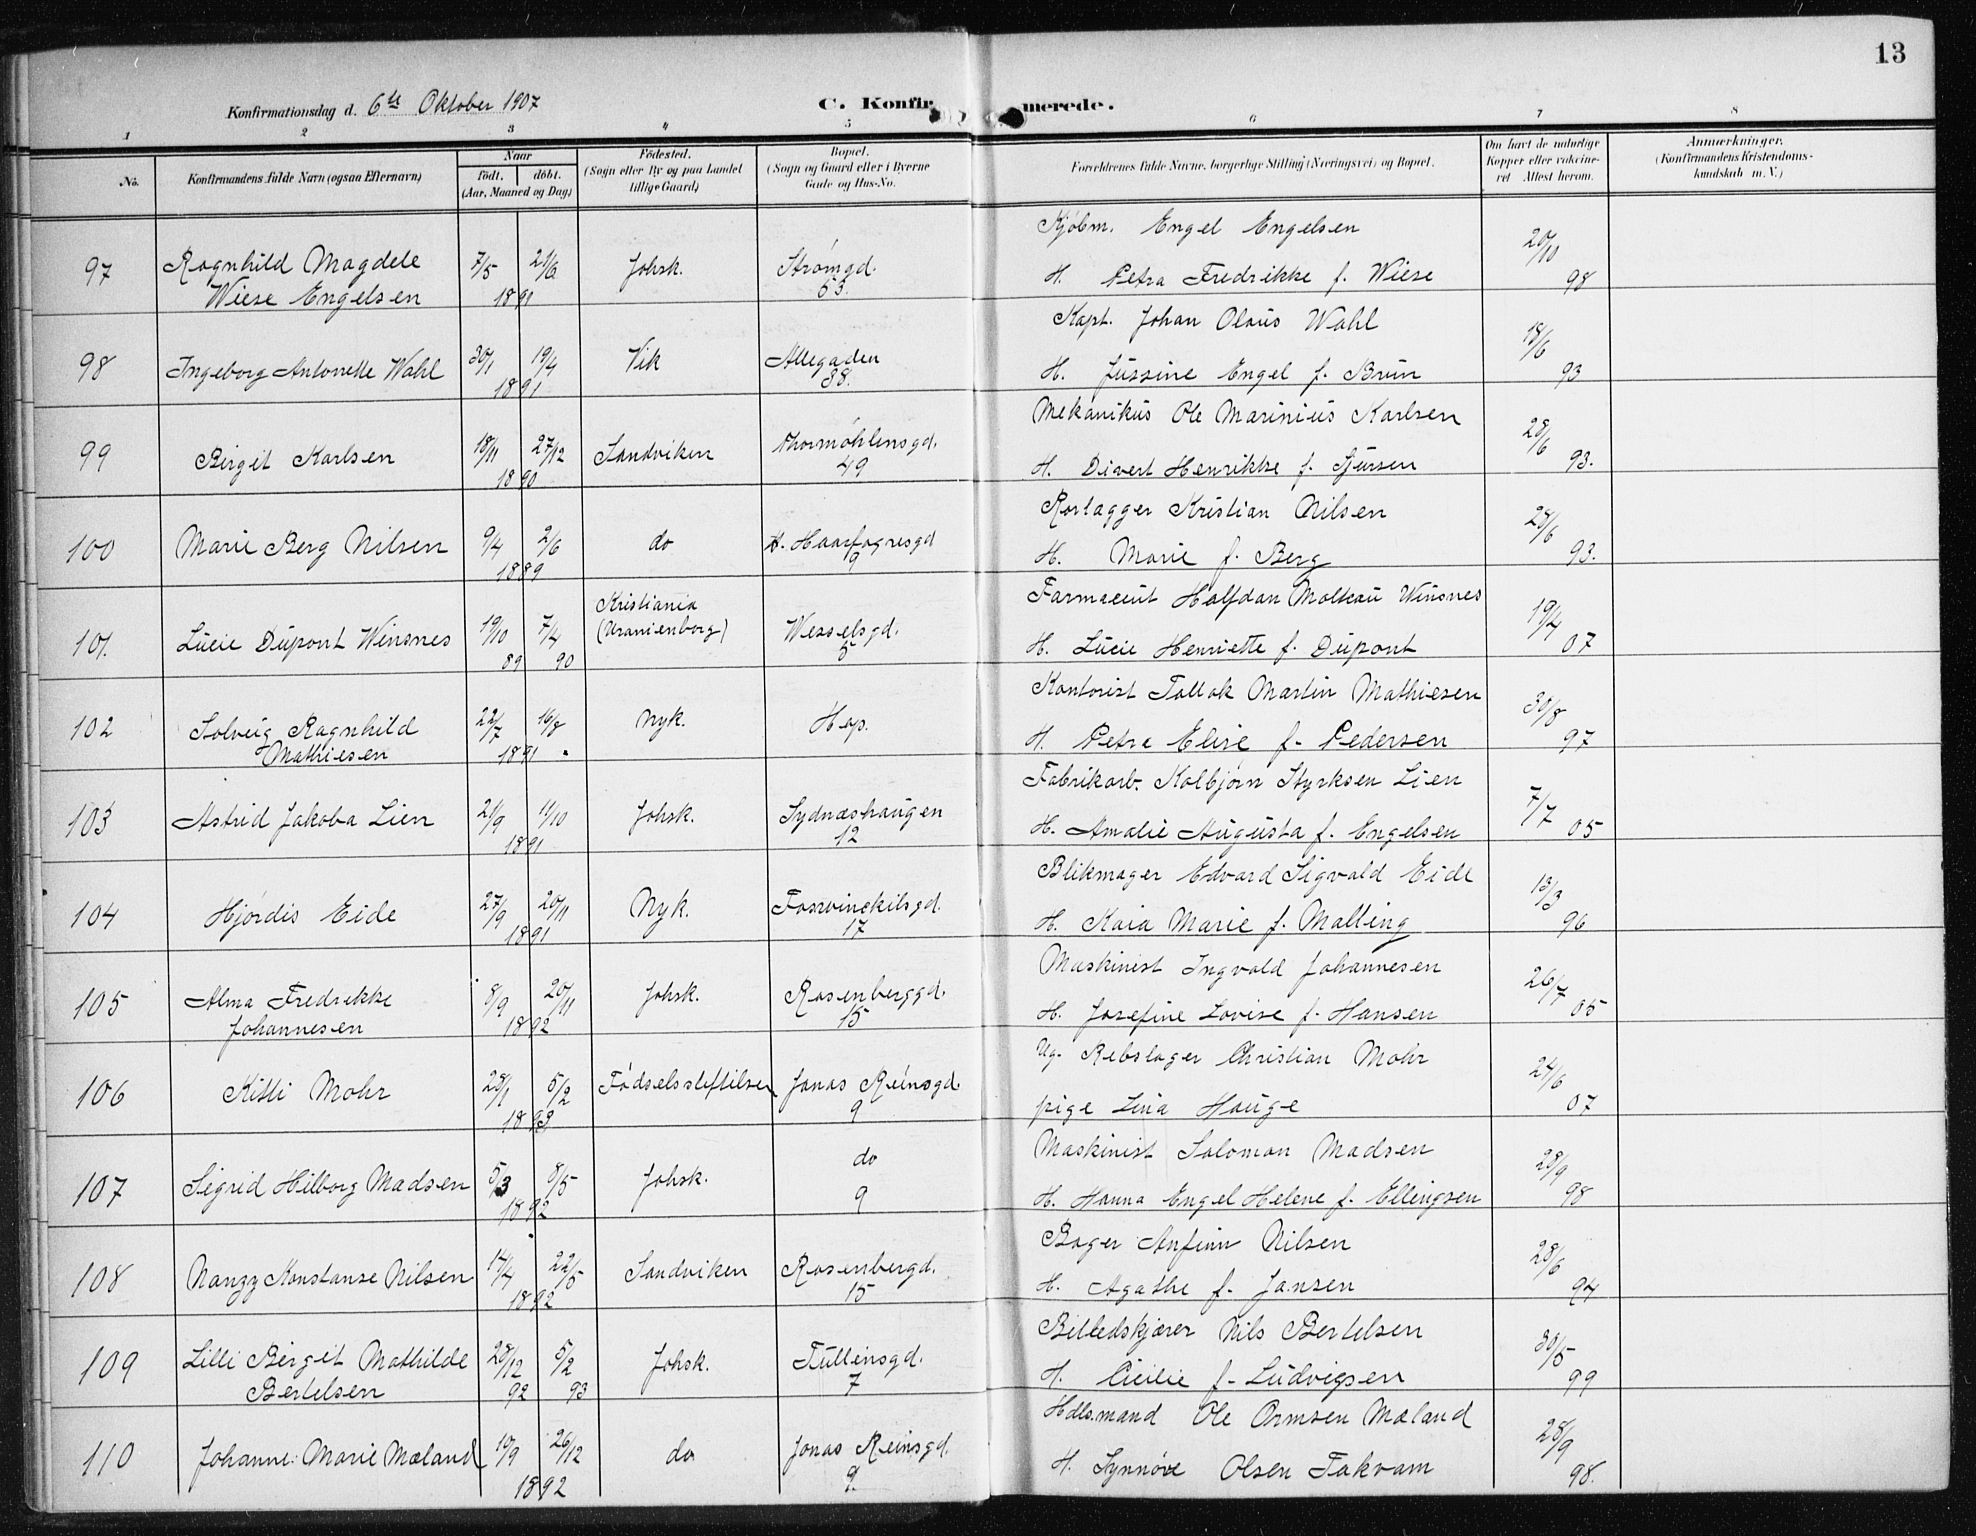 13
Konfirmationsdag d. 6te Oktober 1907
C. Konfirmerede.
1 2 3 4 5 6 7 8
No.
Konfirmandens fulde Navn (ogsaa Efternavn)
Naar
födt. döbt.
(Aar, Maaned og Dag)
Födested.
(Sogn eller By og paa Landet
tillige Gaard)
Bopæl.
(Sogn og Gaard eller i Byerne
Gade og Hus-No.
Forældrenes fulde Navne, borgerlige Stilling (Næringsvei) og Bopæl.
Om havt de naturlige
Kopper eller vakcine-
ret Attest herom.
Anmærkninger.
(Konfirmandens Kristendoms-
kundskab m. V.)
Kjøbm. Engel Engelsen
97 Ragnhild Magdele 7/5 21/6 Johsk. Strømgd. 20/10
Wiese Engelsen 1891 53. H. Petra Fredrikke f. Wiese 98
Kapt. Johan Olaus Wahl
98 Ingeborg Antonette Wahl 30/1 19/4 Vik Allegaden 18/6
1891 38. H. Jussine Engel f. Bruun 93
Mekanikus Ole Marinius Karlsen
99 Birgit Karlsen 18/11 27/12 Sandviken Thormøhlensgd. 28/6
1890 49 H. Divert Henrikke f. Sjursen 93.
Rørlægger Kristian Nilsen
100 Marie Berg Nilsen 9/4 2/6 do H. Haarfagresgd 28/6
1889 9 H. Marie f. Berg 93.
Farmaceut Halfdan Moltzau Winsnes
101. Lucie Dupont Winsnes 19/10 7/4 Kristiania (Uranienborg) Wesselsgd. 19/4
89 90 5 H. Lucie Henriette f. Dupont 07
Kontorist Tallak Martin Mathiesen
102 Solveig Ragnhild 22/7 16/8 Nyk. Hop. 30/8
Mathiesen 1891 " H. Petra Elise f. Pedersen 97
Fabrikarb. Kolbjørn Styrksen Lien
103 Astrid Jakoba Lien 21/9 11/10 Johsk. Sydnæshaugen 7/7
1891 12 H. Amalie Augusta f. Engelsen 05
Blikmager Edvard Sigvald Eide
104 Hjørdis Eide 27/9 20/11 Nyk. Fosswinckilsgd. 13/3
1891 17 H. Kaia Marie f. Malling 96
Maskinist Ingvald Johannesen
105 Alma Fredrikke 8/9 20/11 Johsk. Rosenberggd. 26/7
Johannesen 1892 15 H. Josefine Lovise f. Hansen 05
Ug. Rebslager Christian Mohr
106 Kitti Mohr 28/1 5/2 Fødselsstiftilsen Jonas Reinsgd. 24/6
1893 9 pige Lina Hauge 07
Maskinist Salomon Madsen
107 Sigrid Hilborg Madsen 5/3 8/5 Johsk. do 28/9
1892 9 H. Hanna Engel Helene f. Ellingsen 98
Bager Anfinn Nilsen
108 Nanzy Konstanse Nilsen 17/4 22/5 Sandviken Rosenbergd. 28/6
1892 15 H. Agathe f. Jansen 94
Billedskjærer Nils Bertelsen
109 Lilli Birgit Mathilde 28/12 5/2 Johsk. Tullinsgd. 30/5
Bertelsen 92 93 7 H. Cicilie f. Ludvigsen 99
Hdlsmand Ole Ormsen Mæland
110 Johanne Marie Mæland 10/9 26/12 do Jonas Reinsgd. 28/9
1892 9. H. Synnøve Olsen Takvam 98.